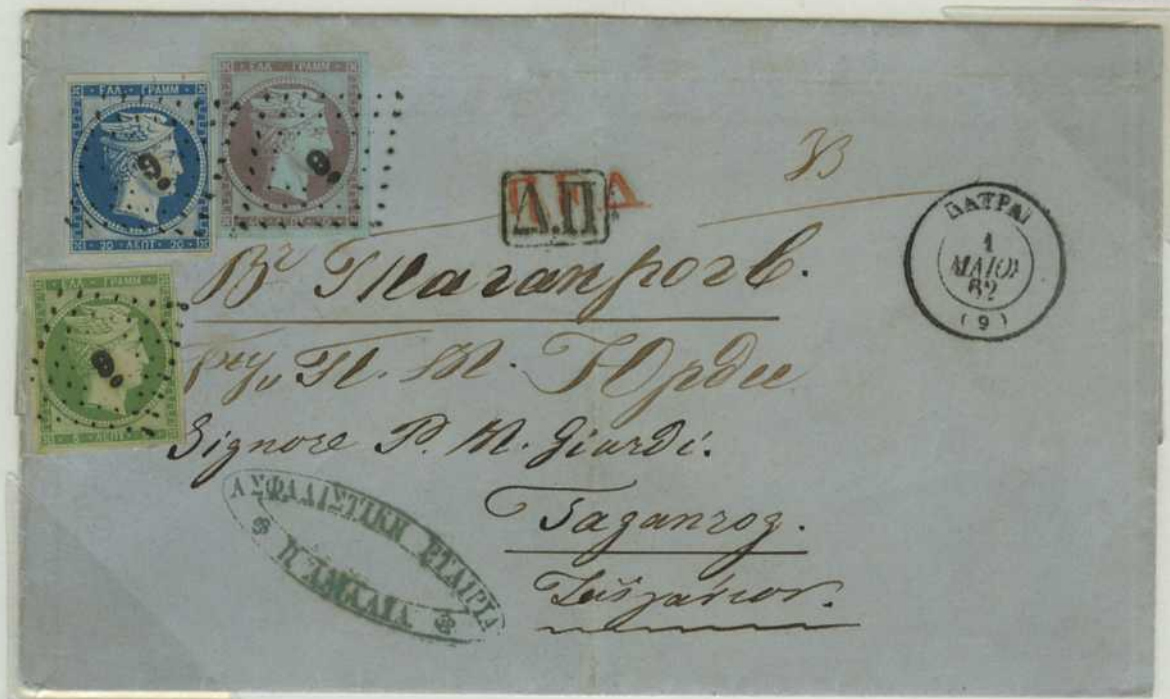 ΕΛΛ · ΓΡΑΜΜ
20 · ΛΕΠΤ · 20
9·
ΕΛΛ · ΓΡΑΜΜ
9·
ΕΛΛ · ΓΡΑΜΜ
5 · ΛΕΠΤ
9·
Δ.Π
ΠΑΤΡΑΙ
1
ΜΑΙΟΥ
62
(9)
Въ Таганрогъ.
П. М. Юрдіи
Signore P. M. Giurdi.
Taganrog.
ΑΣΦΑΛΙΣΤΙΚΗ ΕΤΑΙΡΙΑ